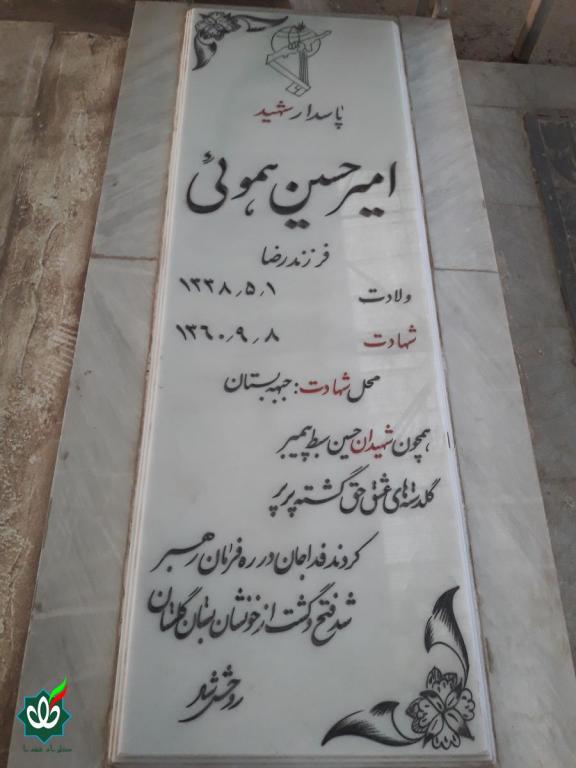 پاسدار شهید
امیر حسین هموئی
فرزند رضا
ولادت ۱۳۳۸٫۵٫۱
شهادت ۱۳۶۰٫۹٫۸
محل شهادت: جبهه بستان
همچون شهیدان حسین سبط پیمبر
گلدسته‌های عشق حق گشته پرپر
کردند فدا جان در ره فرمان رهبر
شد فتح و گشت از خونشان بستان گلستان
روحش شاد